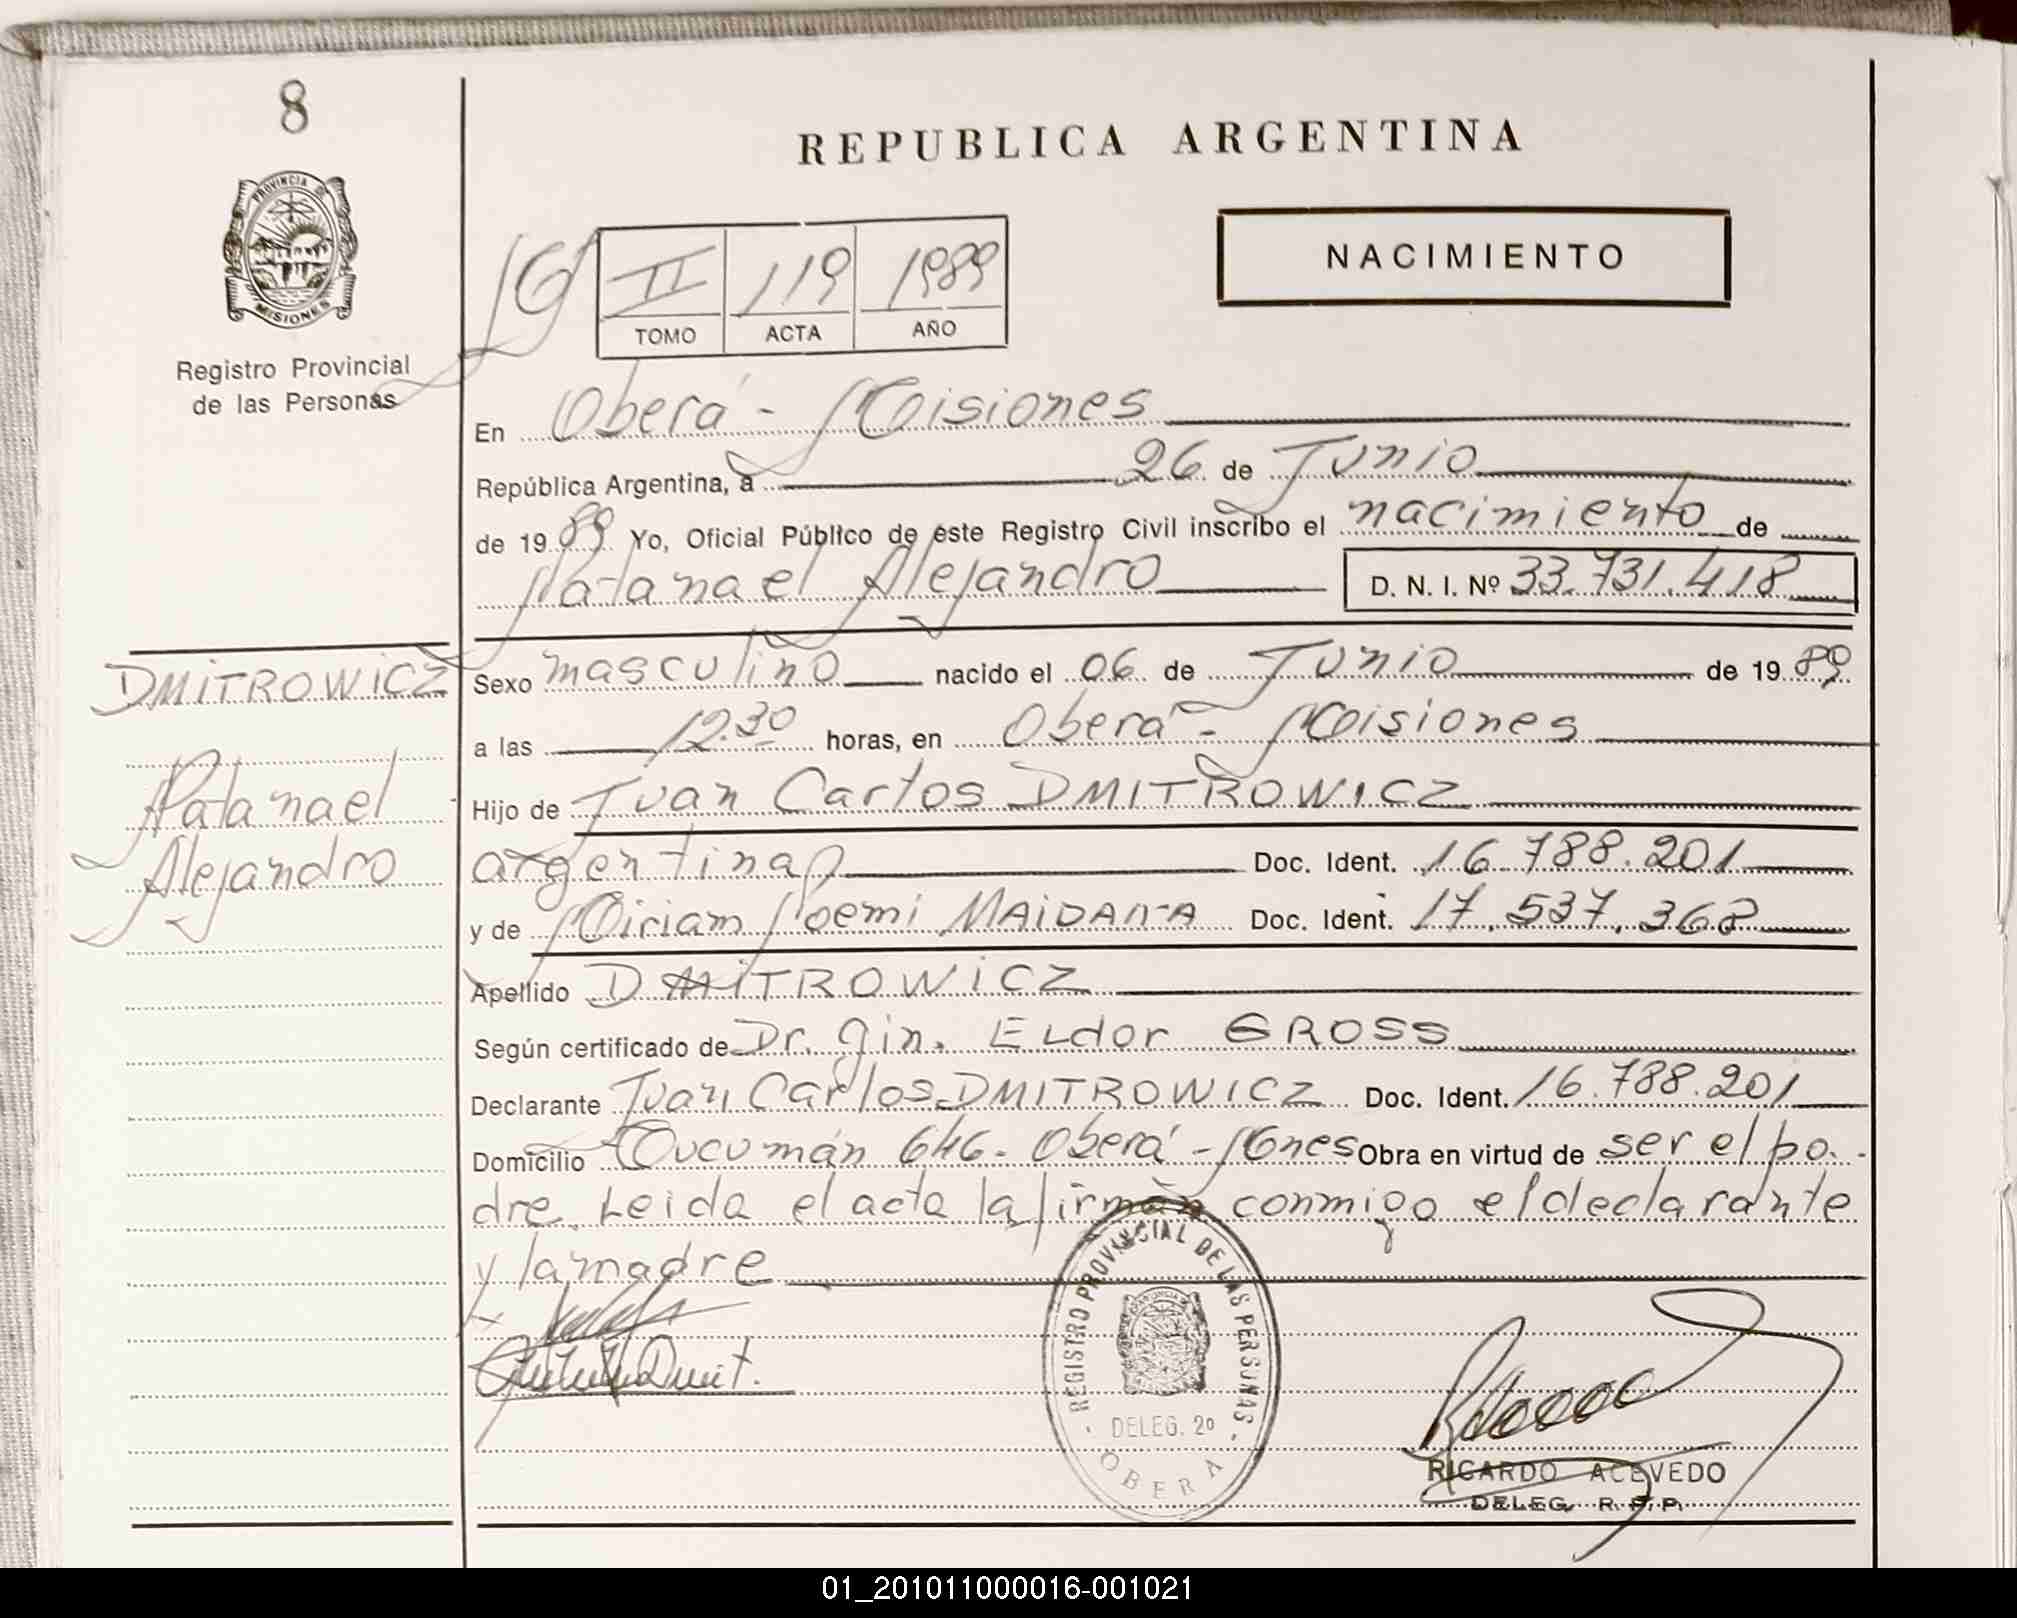 8
PROVINCIA D
MISIONES
Registro Provincial
de las Personas
REPUBLICA ARGENTINA
NACIMIENTO
II 119 1989
TOMO ACTA AÑO
En Oberá - Misiones
República Argentina, a 26 de Junio
de 1989 Yo, Oficial Público de este Registro Civil inscribo el nacimiento de
Natanael Alejandro D. N. I. Nº 33.731.418
DMITROWICZ
Natanael
Alejandro
Sexo masculino nacido el 06 de Junio de 1989
a las 12.30 horas, en Oberá - Misiones
Hijo de Juan Carlos DMITROWICZ
argentina Doc. Ident. 16.788.201
y de Miriam Noemi MAIDANA Doc. Ident. 17.537.368
Apellido DMITROWICZ
Según certificado de Dr. Gin. ELdor GROSS
Declarante Juan Carlos DMITROWICZ Doc. Ident. 16.788.201
Domicilio Tucumán 646 - Oberá - Mnes Obra en virtud de ser el pa-
dre. Leida el acta la firman conmigo el declarante
y la madre
REGISTRO PROVINCIAL DE LAS PERSONAS
DELEG. 2º
OBERA
RICARDO ACEVEDO
DELEG. R. P. P.
01_201011000016-001021